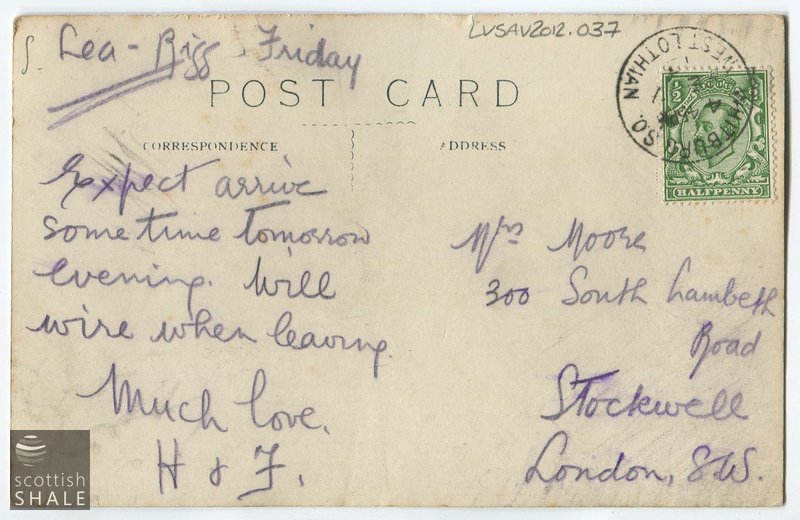 Lea-Rigg. Friday
LVSAV2012.037
POST CARD
CORRESPONDENCE
ADDRESS
WEST LOTHIAN
S.O.
½
HALFPENNY
Expect arrive
some time tomorrow
evening. Will
wire when leaving.
Much love.
H & F.
Mrs Moore
300 South Lambeth
Road
Stockwell
London, S.W.
scottish
SHALE